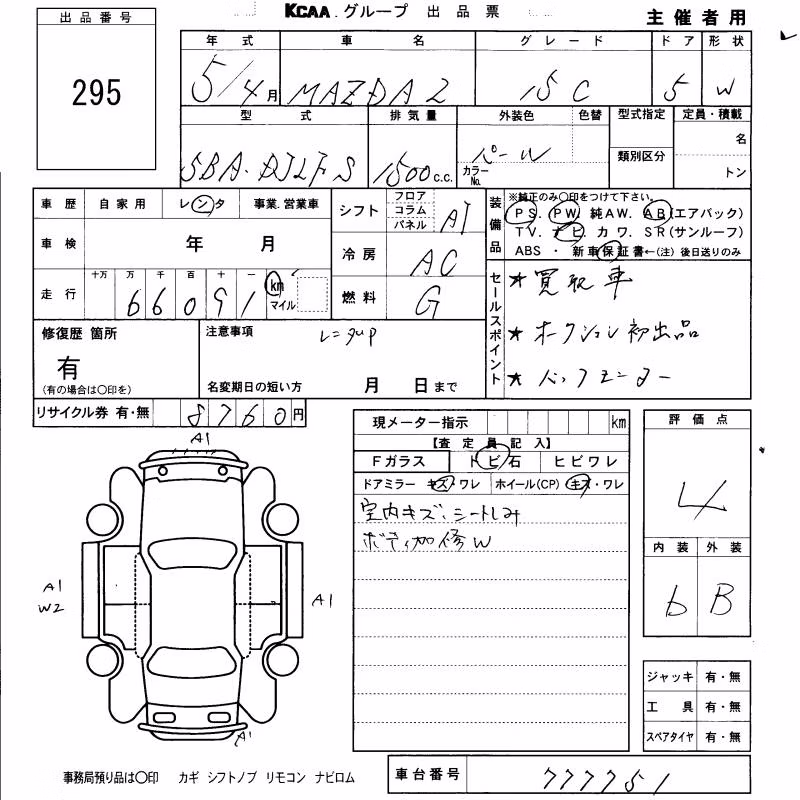 出品番号
295
KCAA グループ 出品票
主催者用
年式 車名 グレード ドア 形状
5/4月 MAZDA2 15C 5 W
型式 排気量 外装色 色替 型式指定 定員・積載
5BA-DJLFS 1500c.c. パール カラーNo. 類別区分 名 トン
車歴 自家用 レンタ 事業.営業車
車検 年 月
走行 十万 万 千 百 十 一
66091 km マイル
シフト フロア コラム パネル AT
冷房 AC
燃料 G
装備品
※純正のみ〇印をつけて下さい。
PS. PW. 純AW. AB(エアバック)
TV. ナビ. カワ. SR(サンルーフ)
ABS ・ 新車保証書←(注)後日送りのみ
セールスポイント
★買取車
★オークション初出品
★バックモニター
修復歴 箇所
有
(有の場合は〇印を)
注意事項 レ=タup
名変期日の短い方 月 日まで
リサイクル券 有・無 8760円
現メーター指示 km
【査定員記入】
Fガラス トビ石 ヒビワレ
ドアミラー キズ・ワレ ホイール(CP) キズ・ワレ
室内キズ、シートしみ
ボディ加修W
評価点
4
内装 外装
b B
A1
A1
W2
A1
A1
ジャッキ 有・無
工具 有・無
スペアタイヤ 有・無
事務局預り品は〇印 カギ シフトノブ リモコン ナビロム
車台番号 777751